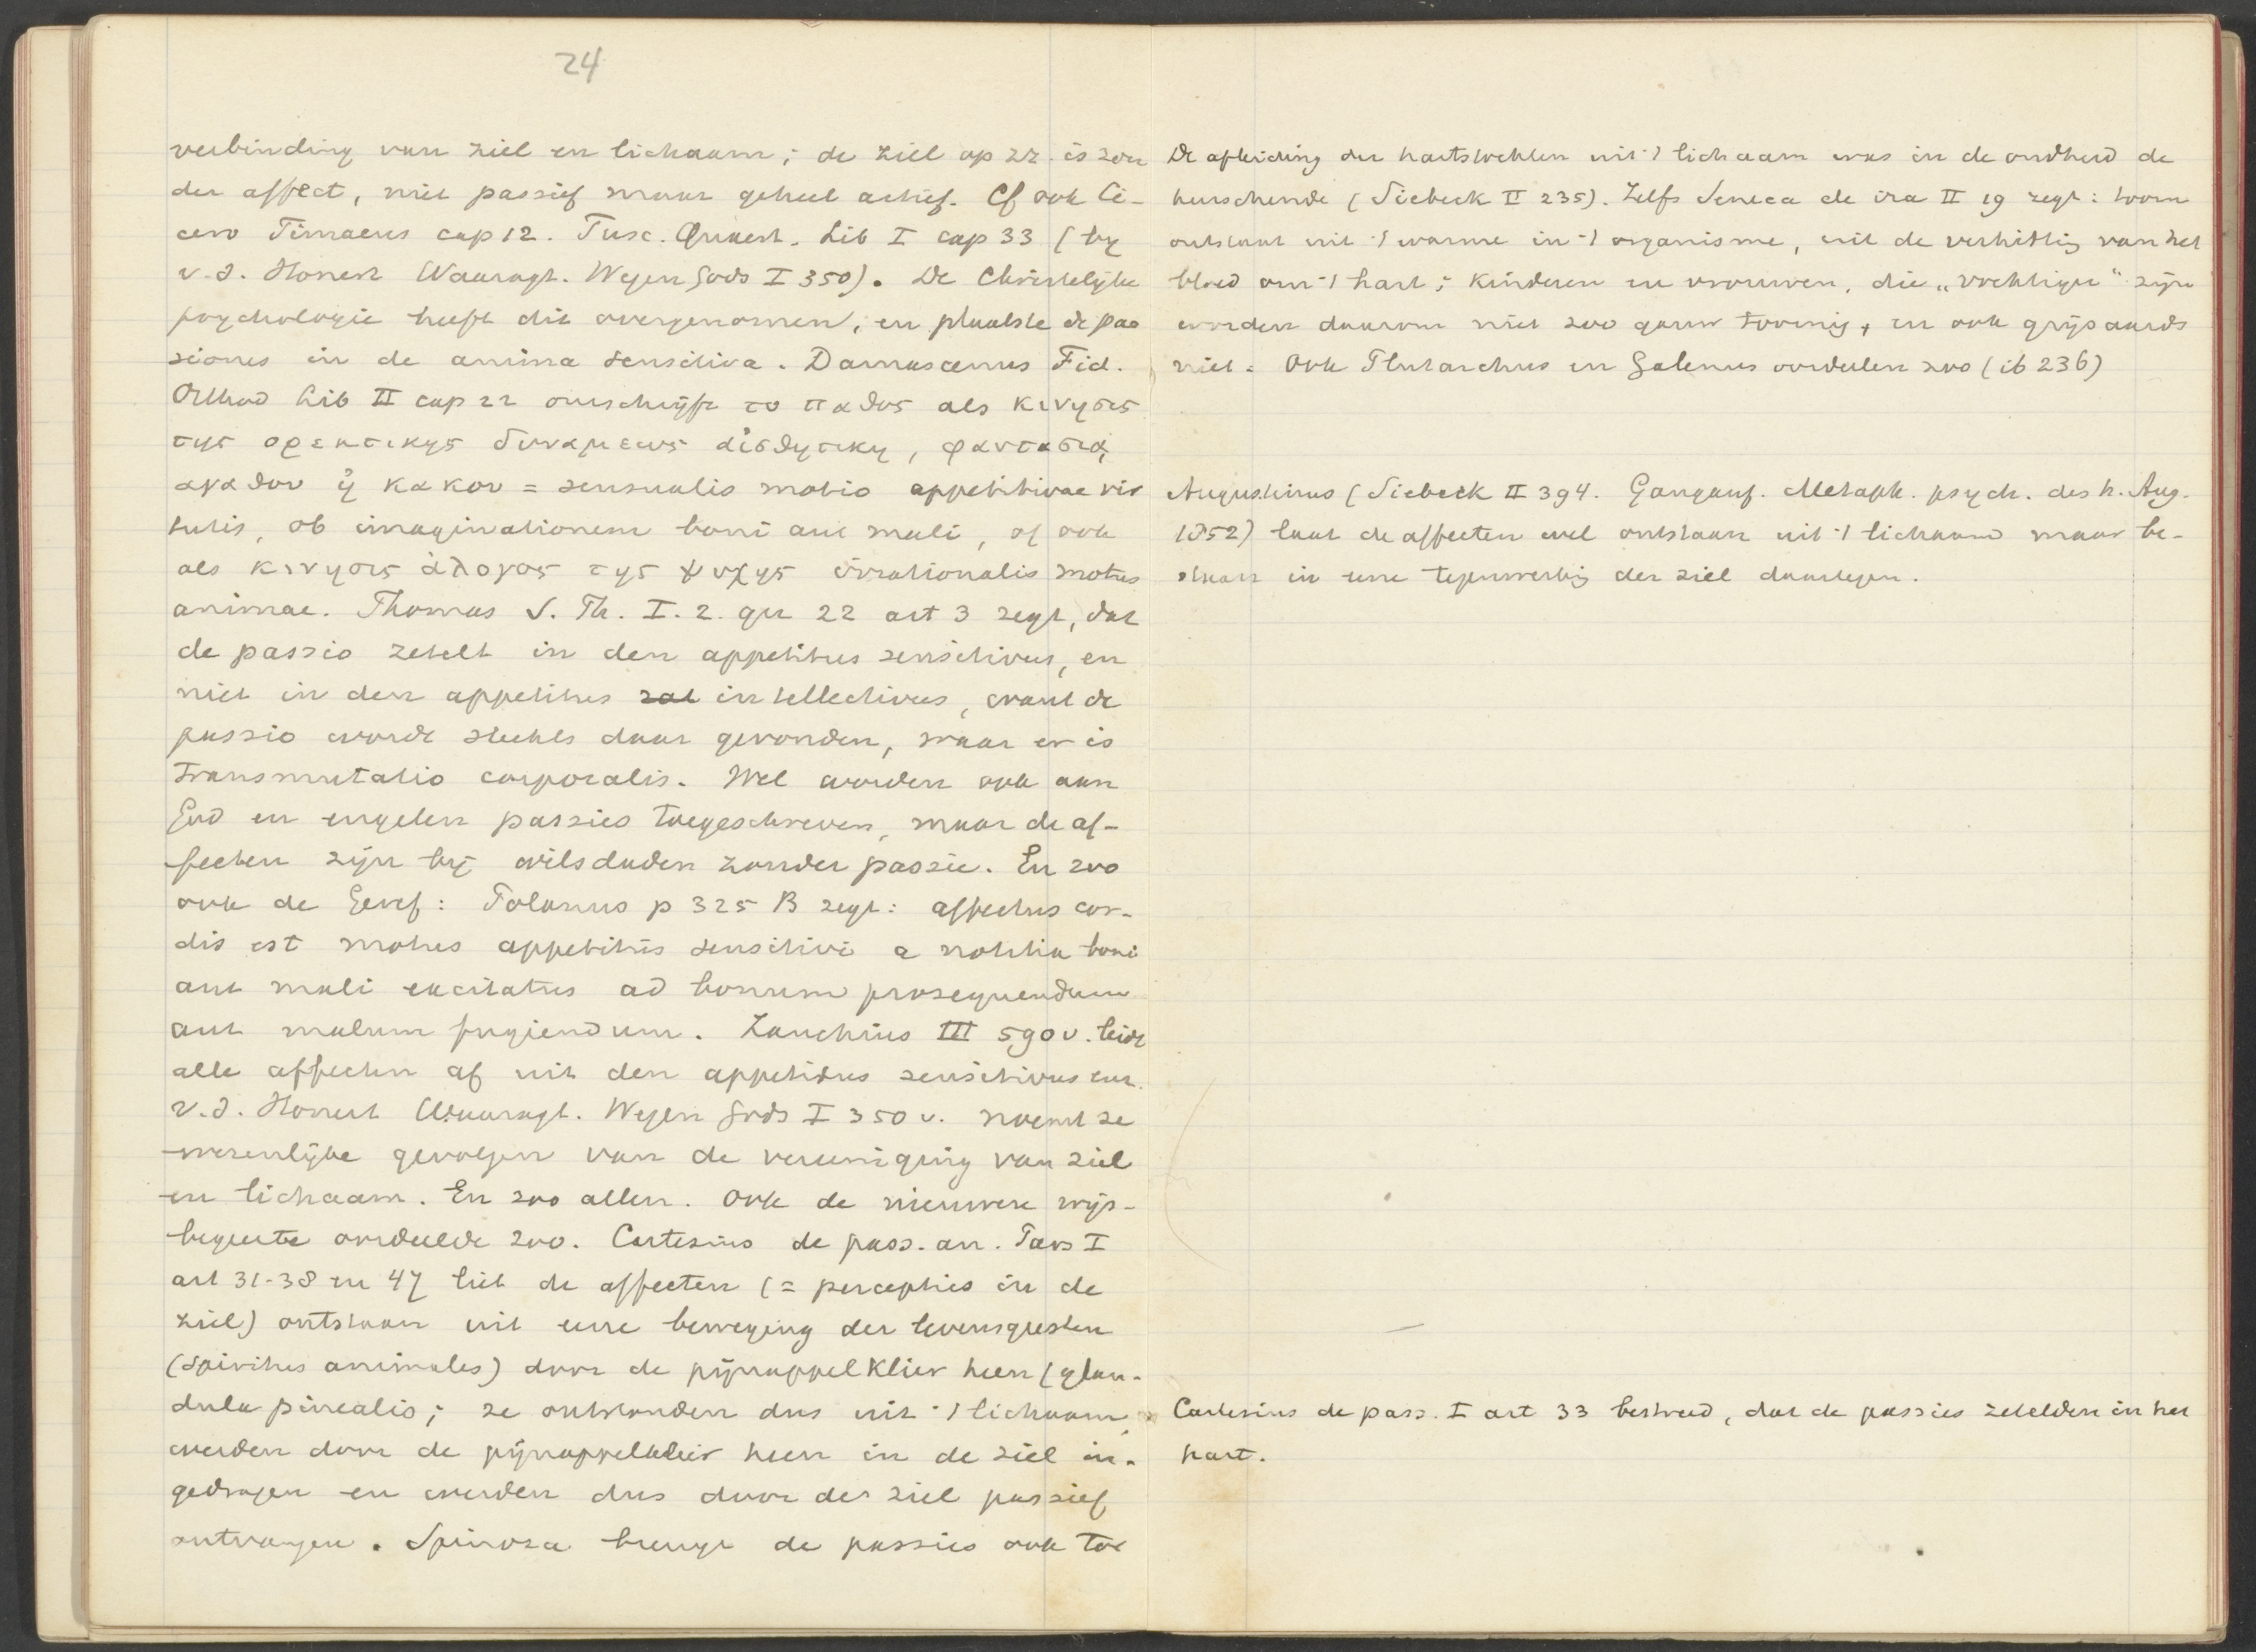 24
verbinding van ziel en lichaam; de ziel op zz. is zon
der affect, niet passief maar geheel actief. Cf ook Ci-
cero Timaeus cap 12. Tusc. Quaest. Lib I cap 33 (by
v.d. Honert Waaragt. Wegen Gods I 350). De Christelyke
psychologie heeft dit overgenomen, en plaatste de pas
siones in de anima sensitiva. Damascenus Fid.
Orthod Lib II cap 22 omschrijft το παθος als κινησις
της ορεκτικης δυναμεως αἰσθητικη, φαντασιᾳ
αγαθου ἠ κακου = sensualis motio appetitivae vir
tutis, ob imaginationem boni aut mali, of ook
als κινησις ἀλογος της ψυχης irrationalis motus
animae. Thomas S. Th. I. 2. qu 22 art 3 zegt, dat
de passio zetelt in den appetitus sensitivus, en
niet in den appetitus rat intellectivus, want de
passio wordt slechts daar gevonden, waar er is
transmutatio corporalis. Wel worden ook aan
God en engelen passies toegeschreven, maar de af-
fecten zijn bij wilsdaden zonder passie. En zoo
ook de Geref: Polanus p 325 B zegt: affectus cor-
dis est motus appetitus sensitivi a notitia boni
aut mali excitatus ad bonum prosequendum
aut malum fugiendum. Zanchius III 590 v. leidt
alle affecten af uit den appetitus sensitivus enz.
v.d. Honert Waaragt. Wegen Gods I 350 v. noemt ze
wezenlijke gevolgen van de vereeniging van ziel
en lichaam. En zoo allen. Ook de nieuwere wijs-
begeerte oordeelde zoo. Cartesius de pass. an. Pars I
art 31-38 en 47 liet de affecten (= percepties in de
ziel) ontstaan uit eene beweging der levensgeesten
(spiritus animales) door de pijnappelklier heen (glan-
dula pinealis; ze ontstonden dus uit 't lichaam,
werden door de pijnappelklier heen in de ziel in-
gedragen en werden dus door de ziel passief
ontvangen. Spinoza brengt de passies ook tot
De afleiding der hartstochten uit 't lichaam was in de oudheid de
heerschende (Siebeck II 235). Zelfs Seneca de ira II 19 zegt: toorn
ontstaat uit 't warme in 't organisme, uit de verhitting van het
bloed om 't hart; kinderen en vrouwen, die „vochtiger" zijn
worden daarom niet zoo gauw toornig, en ook grijsaards
niet. Ook Plutarchus en Galenus oordeelen zoo (ib 236)
Augustinus (Siebeck II 394. Gangauf. Metaph. psych. des h. Aug.
1852) laat de affecten wel ontstaan uit 't lichaam maar be-
staan in eene tegenwerking der ziel daartegen.
Cartesius de pass. I art 33 bestreed, dat de passies zetelden in het
hart.